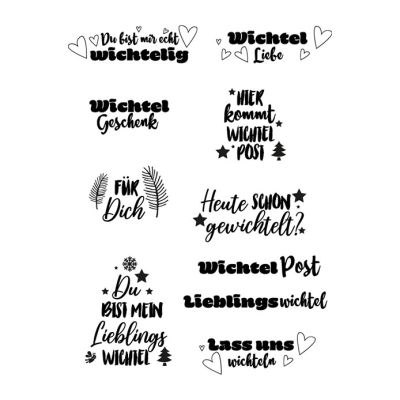 Du bist mir echt
wichtelig
Wichtel
Liebe
Wichtel
Geschenk
HIER
kommt
WICHTEL
POST
FÜR
Dich
Heute SCHON
gewichtelt?
Wichtel Post
Lieblingswichtel
Du
BIST MEIN
Lieblings
WICHTEL
Lass uns
wichteln